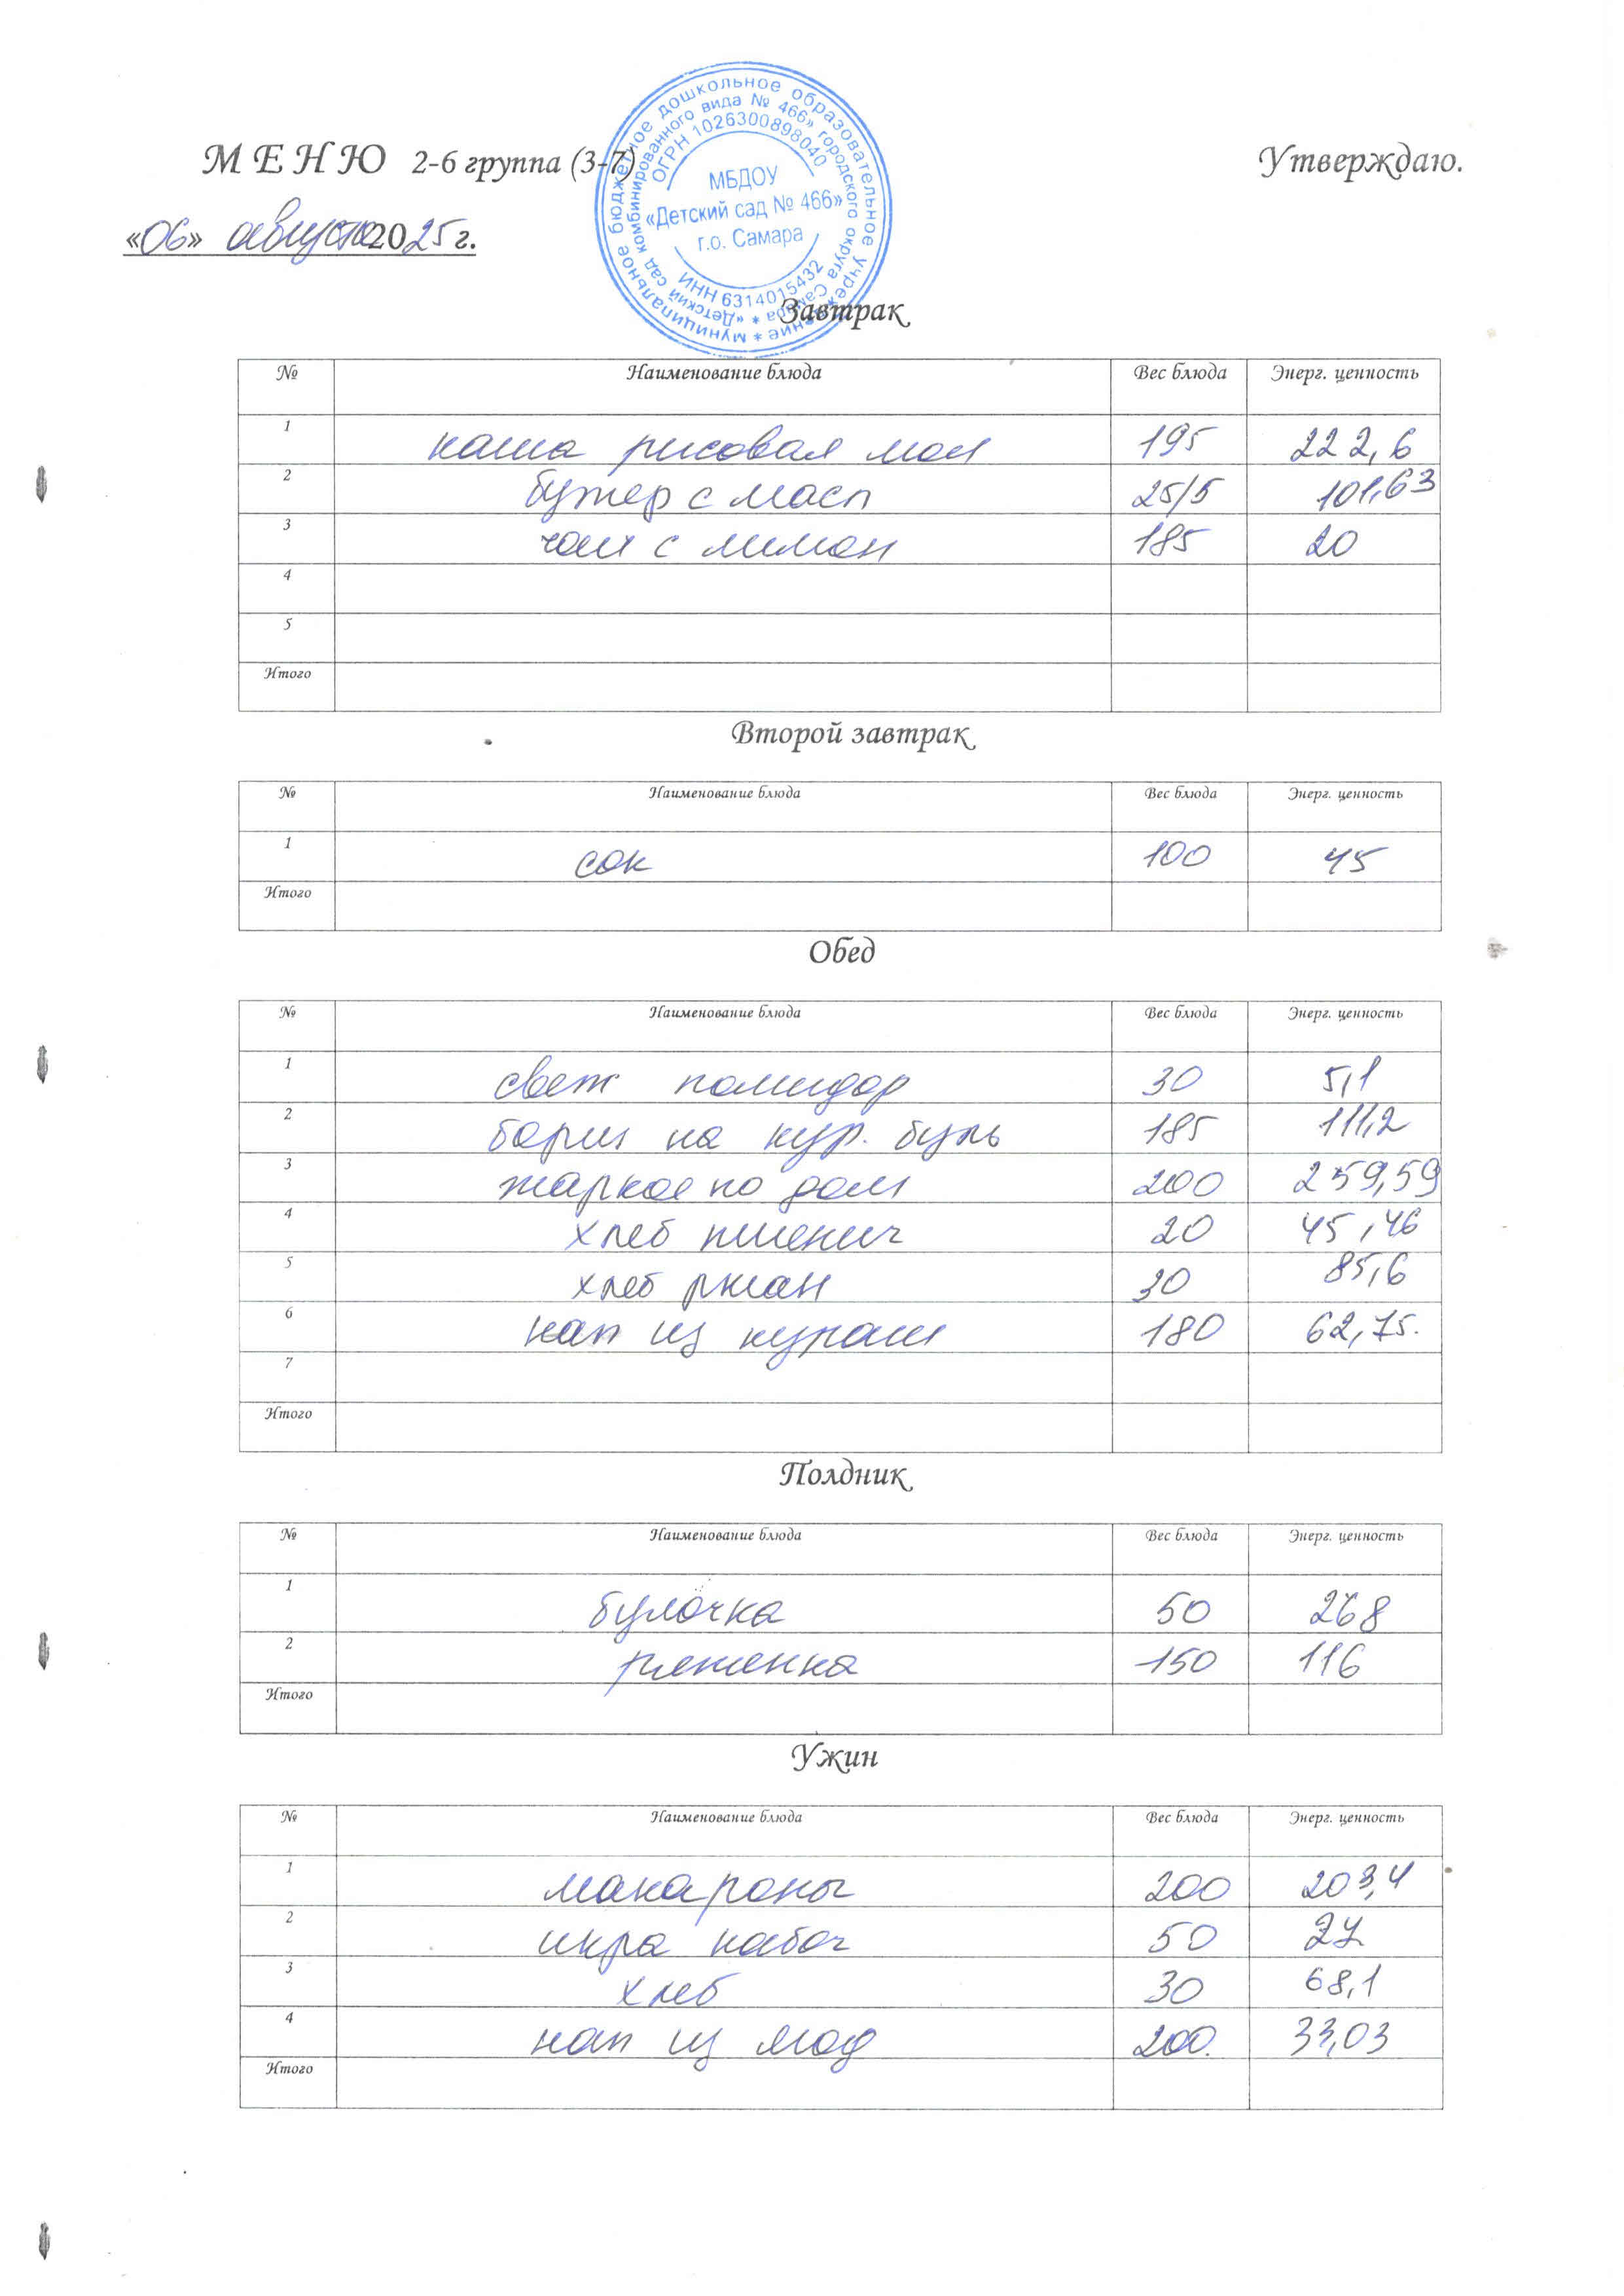 М Е Н Ю 2-6 группа (3-7)
Утверждаю.
«06» августа 2025 г.
муниципальное бюджетное дошкольное образовательное учреждение *
«Детский сад комбинированного вида № 466» городского округа Самара *
ОГРН 1026300898040
МБДОУ
«Детский сад № 466»
г.о. Самара
ИНН 6314015432
Завтрак
№ Наименование блюда Вес блюда Энерг. ценность
1 каша рисовая мол 195 222,6
2 бутер с масл 25/5 101,63
3 чай с лимон 185 20
4
5
Итого
Второй завтрак
№ Наименование блюда Вес блюда Энерг. ценность
1 сок 100 45
Итого
Обед
№ Наименование блюда Вес блюда Энерг. ценность
1 свеж помидор 30 5,1
2 борщ на кур. буль 185 111,2
3 жаркое по дом 200 259,59
4 хлеб пшенич 20 45,46
5 хлеб ржан 30 85,6
6 нап из кураги 180 62,75.
7
Итого
Полдник
№ Наименование блюда Вес блюда Энерг. ценность
1 булочка 50 268
2 ряженка 150 116
Итого
Ужин
№ Наименование блюда Вес блюда Энерг. ценность
1 макароны 200 203,4
2 икра кабач 50 27
3 хлеб 30 68,1
4 нап из ягод 200. 33,03
Итого